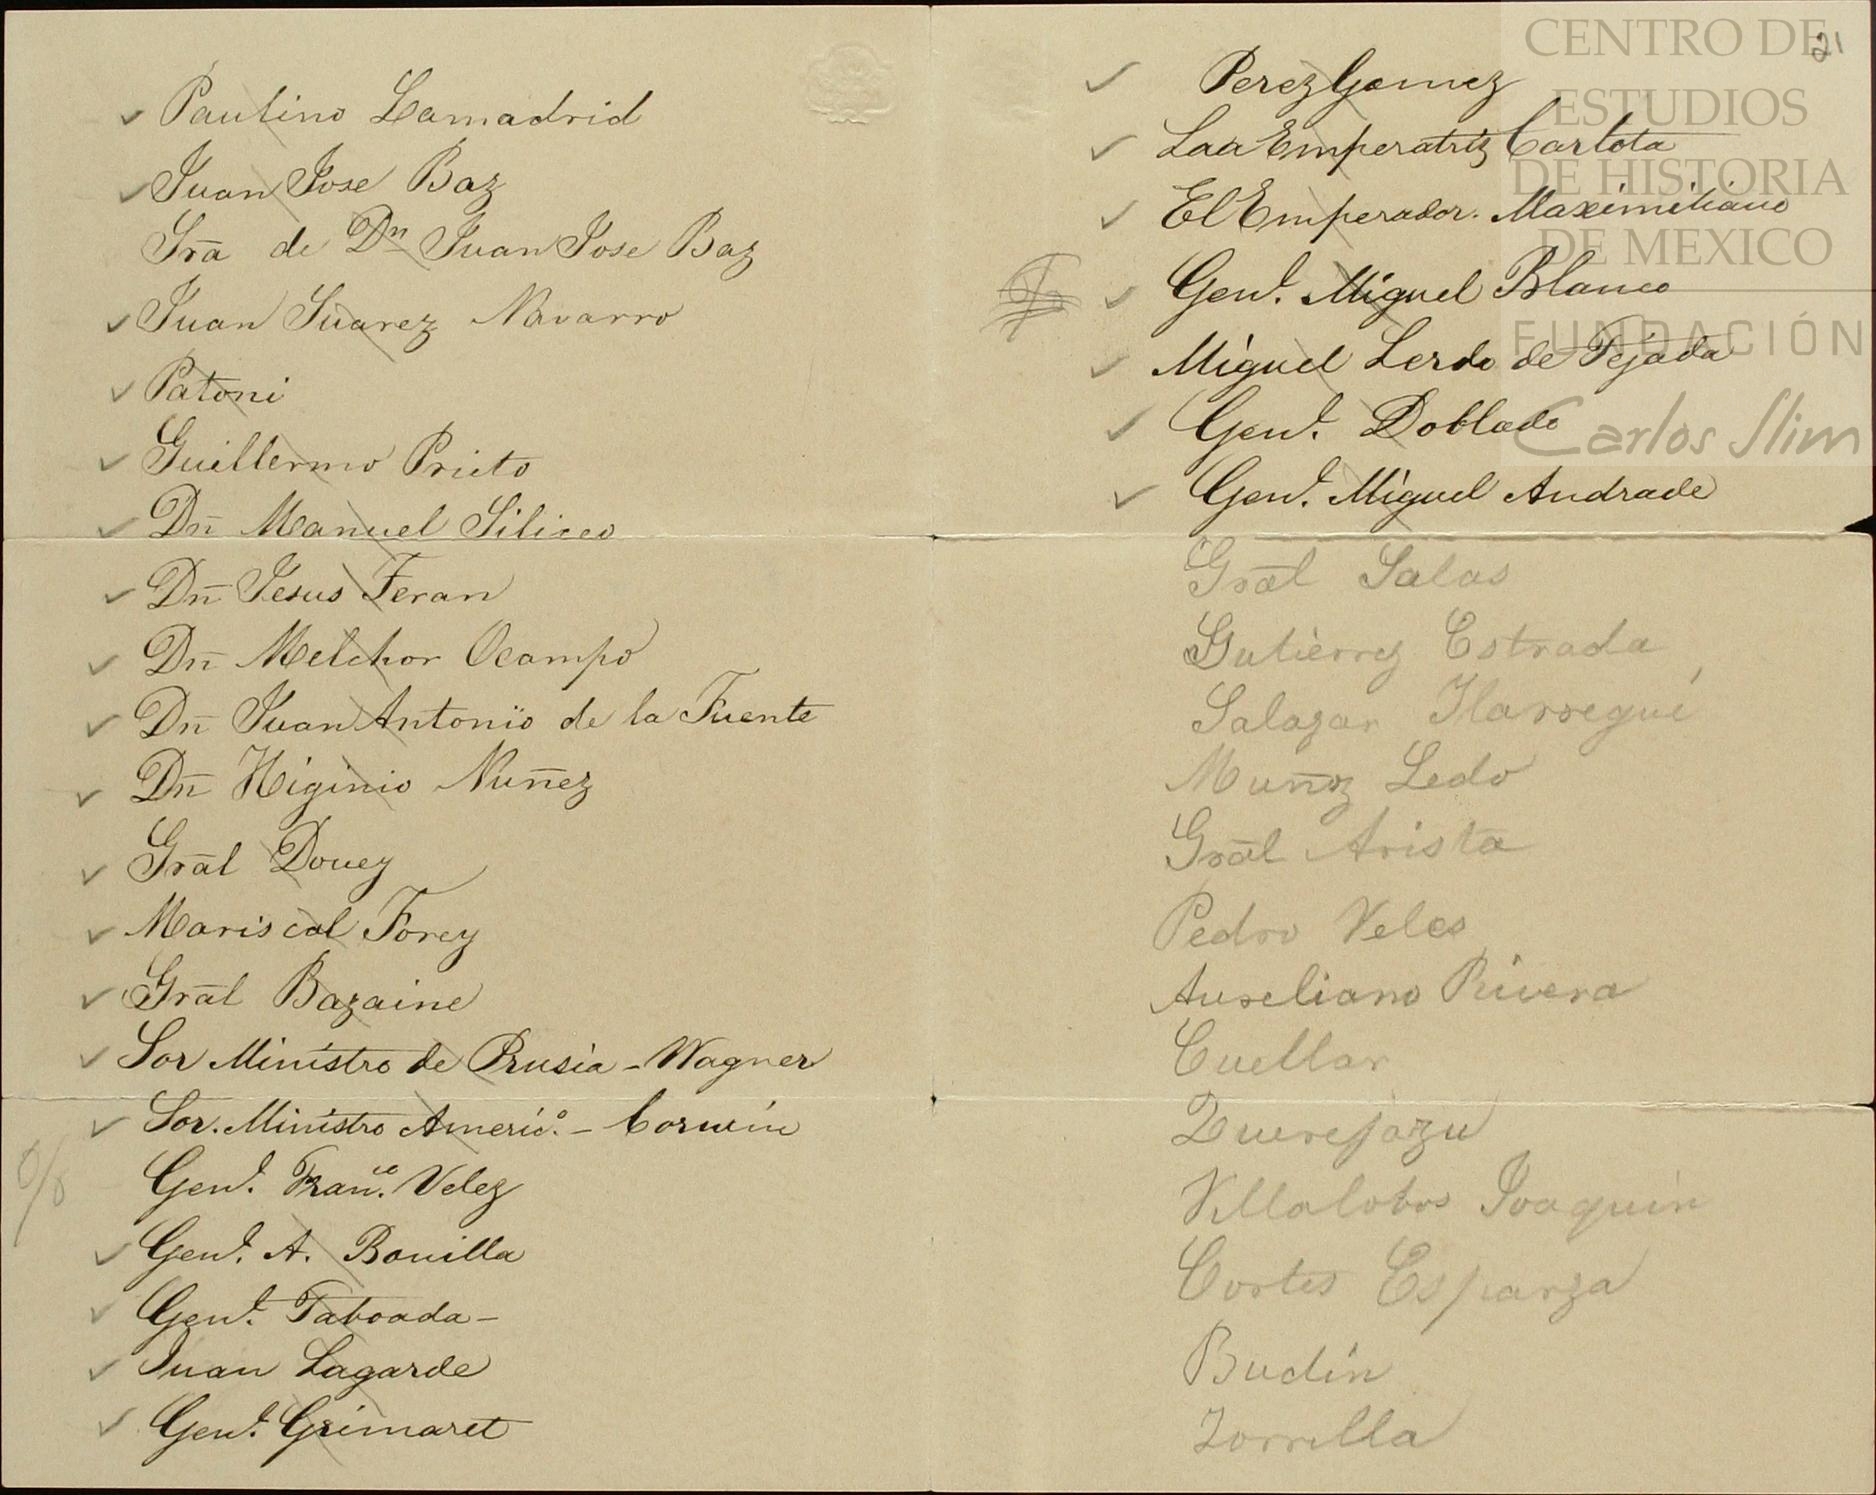 Paulino Lamadrid
Juan Jose Baz
Sra de Dn Juan Jose Baz
Juan Suarez Navarro
Patoni
Guillermo Prieto
Dn Manuel Siliceo
Dn Jesus Teran
Dn Melchor Ocampo
Dn Juan Antonio de la Fuente
Dn Higinio Nuñez
Gral Douey
Mariscal Forey
Gral Bazaine
Sor Ministro de Prusia - Wagner
Sor. Ministro Americ.º - Corwin
Genl. Franco. Velez
Genl. A. Bonilla
Genl. Taboada -
Juan Lagarde
Genl. Grimaret
21
Perez Gomez
Laa Emperatriz Carlota
El Emperador. Maximiliano
Genl. Miguel Blanco
Miguel Lerdo de Tejada
Genl. Doblado
Genl. Miguel Andrade
Gral Salas
Gutierrez Estrada
Salazar Ilarregui
Muñoz Ledo
Gral Arista
Pedro Veles
Aureliano Rivera
Cuellar
Querejazu
Villalobos Joaquin
Cortes Esparza
Budin
Zorrilla
CENTRO DE
ESTUDIOS
DE HISTORIA
DE MEXICO
FUNDACIÓN
Carlos Slim